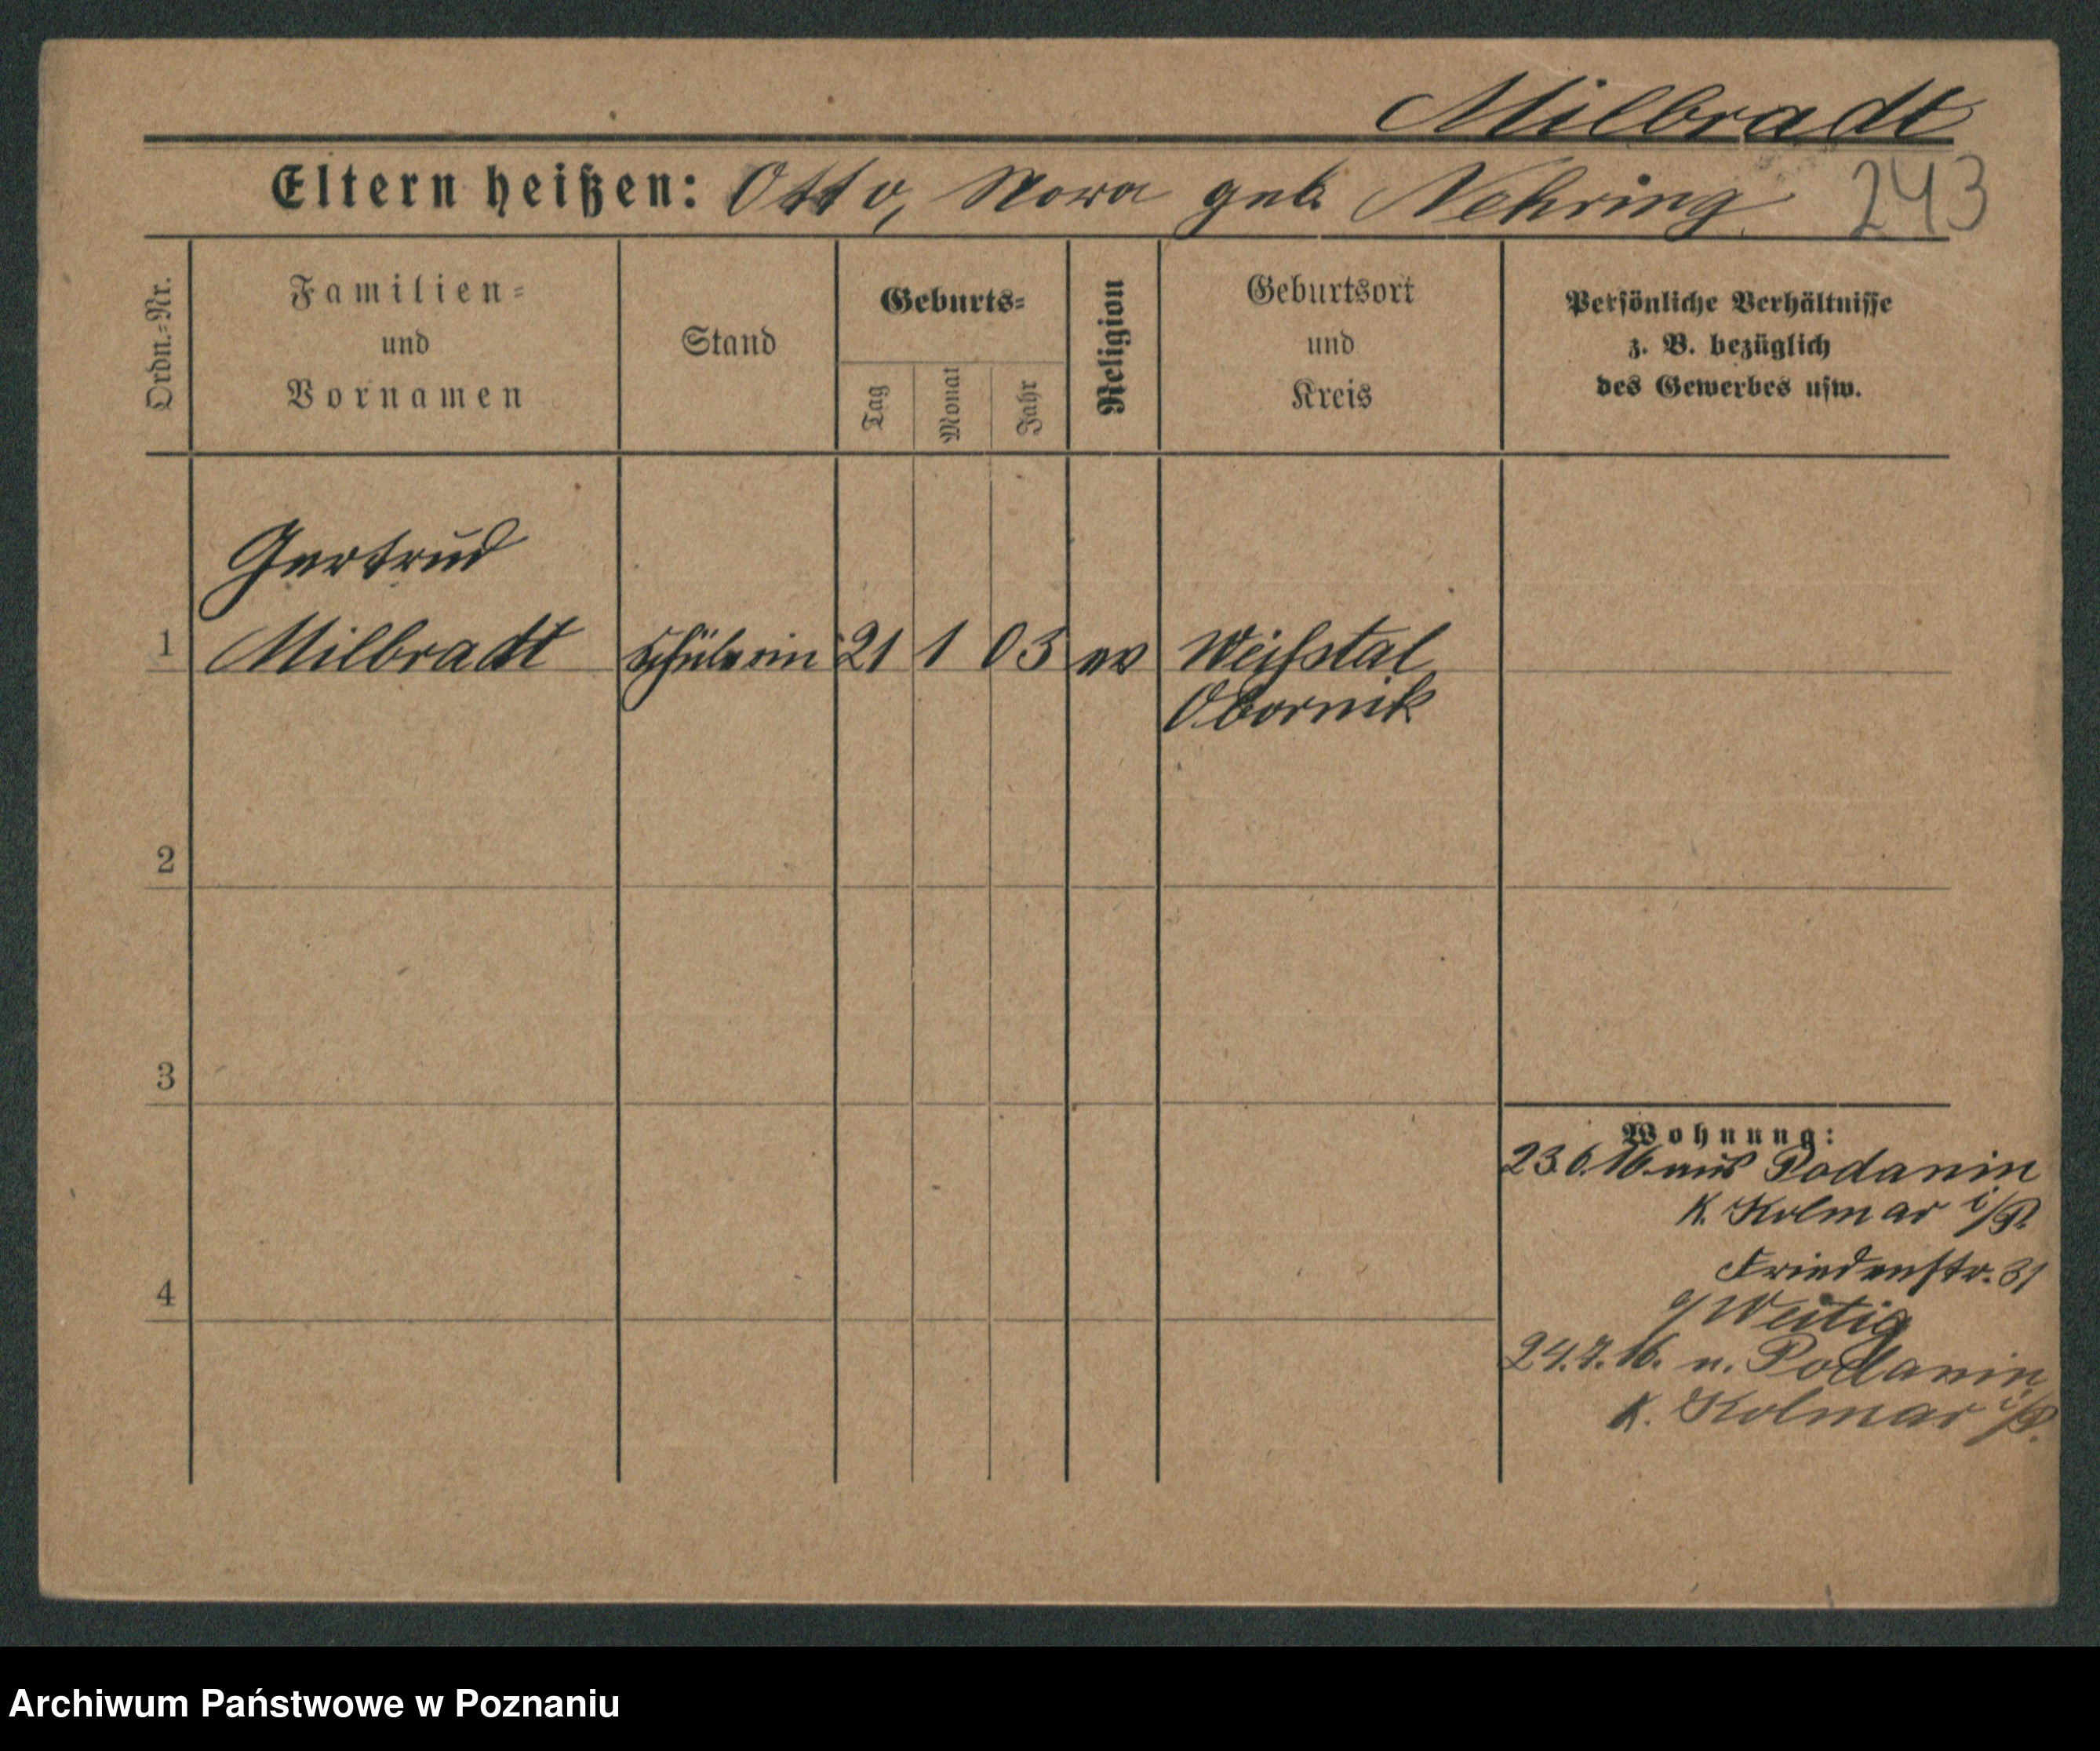 Milbradt
Eltern heißen: Otto, Nora geb. Nehring 243
Ordn.=Nr.
Familien=
und
Vornamen
Stand
Geburts=
Tag
Monat
Jahr
Religion
Geburtsort
und
Kreis
Persönliche Verhältnisse
z. B. bezüglich
des Gewerbes usw.
Gertrud
1 Milbradt Schülerin 21 1 03 ev Weißtal
Obornik
2
3
4
Wohnung:
23.6.16. aus Podanin
K. Kolmar i/P.
Friedenstr. 31
24.7.16. n. Podanin
K. Kolmar i/P.
Archiwum Państwowe w Poznaniu